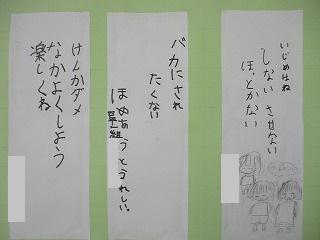 いじめはね
しない させない
ほっとかない
バカにされ
たくない
ほめあうとうれしい。
けんかダメ
なかよくしよう
楽しくね